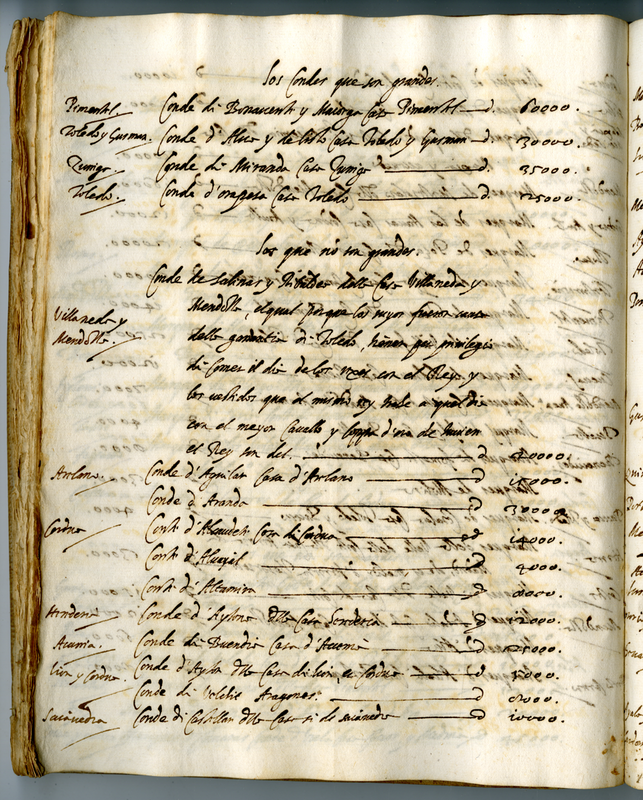 Los Condes que son grandes.
Pimentel. Conde di Bonavente y Maiorga Casa Pimentel d. 60000.
Toledo y Gusman. Conde d'Alva y de Casa Toledo y Gusman d. 30000.
Zuniga. Conde di Miranda Casa Zuniga d. 35000.
Toledo. Conde d'oropesa Casa Toledo d. 25000.
Los que no son grandes.
Conde de Salinas y Ribadeo della Casa Villaneda y
Villaneda y Mendozza, el qual porque los suyos fueron
Mendozza. della di Toledo, tienen por privilegio
di comer il dia de los Reies con el Rey y
los vestidos que el mismo Rey trahe a quel dia
con el mejor Cavallo y Coppa d'oro de
el Rey son del. d 40000.
Arelano. Conde d'Aguilar Casa d'Arelano d 15000.
Conde d Aranda d 30000
Cordova Conde d'Alcaudete Casa di Cordova d 14000.
Conde d' d 4000.
Conde d'Altamira d 8000.
Conde d'Aytona della Casa d 12000.
Acunia. Conde di Buendia Casa d'Acunia d 25000.
Conde d'Ayala della Casa di y Cordova d 5000.
Conde di Velchite Aragones d 8000.
Saiavedra Conde di Castellar della Casa di saiavedra d 10000.